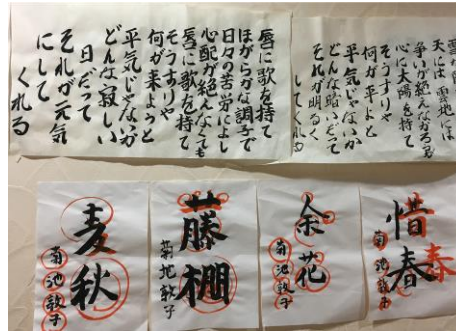 唇に歌を持て
ほがらかな調子で
日々の苦労によし
心配が絶えなくても
唇に歌を持て
そうすりや
何が来ようと
平気じゃないか
どんな寂しい
日だって
それが元気
にして
くれる
天には雲地には
争いが絶えなかろうが
心に太陽を持て
そうすりや
何が来ようと
平気じゃないか
どんな暗い日だって
それが明るく
してくれる
惜春
春
菊池敦子
余花
菊池敦子
藤棚
菊地敦子
麦秋
菊池敦子